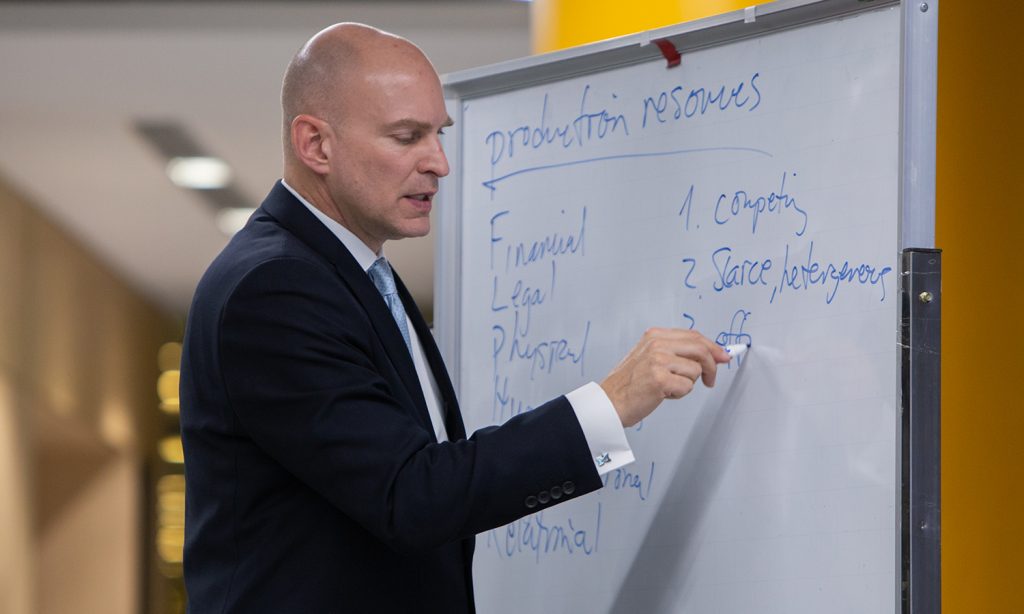 production resources
Financial
Legal
Physical
Relational
1. competing
2. Scarce, heterogeneous